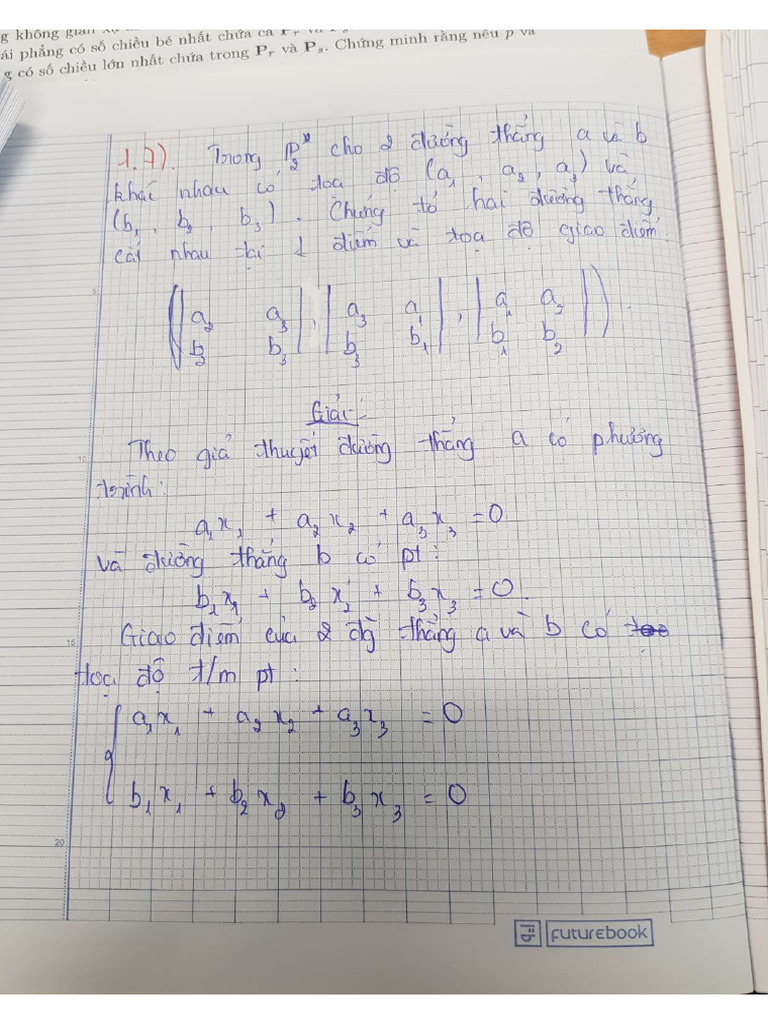 g không gian
ái phẳng có số chiều bé nhất chứa cả P_r và P_s.
g có số chiều lớn nhất chứa trong P_r và P_s. Chứng minh rằng nếu p và
1.7). Trong P_2 cho 2 đường thẳng a và b
khác nhau có toạ độ (a_1, a_2, a_3) và
(b_1, b_2, b_3). Chứng tỏ hai đường thẳng
cắt nhau tại 1 điểm và toạ độ giao điểm:
( | a_2 a_3 | , | a_3 a_1 | , | a_1 a_2 | ).
| b_2 b_3 | | b_3 b_1 | | b_1 b_2 |
Giải:
Theo giả thuyết đường thẳng a có phương
trình:
a_1x_1 + a_2x_2 + a_3x_3 = 0
và đường thẳng b có pt:
b_1x_1 + b_2x_2 + b_3x_3 = 0
Giao điểm của 2 đg thẳng a và b có
toạ độ t/m pt:
{ a_1x_1 + a_2x_2 + a_3x_3 = 0
b_1x_1 + b_2x_2 + b_3x_3 = 0
5
10
15
20
FUTUREBOOK